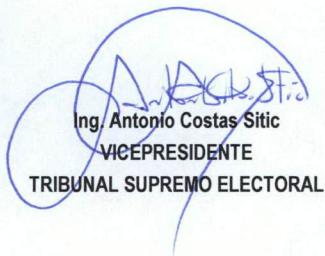 Ing. Antonio Costas Sitic
VICEPRESIDENTE
TRIBUNAL SUPREMO ELECTORAL